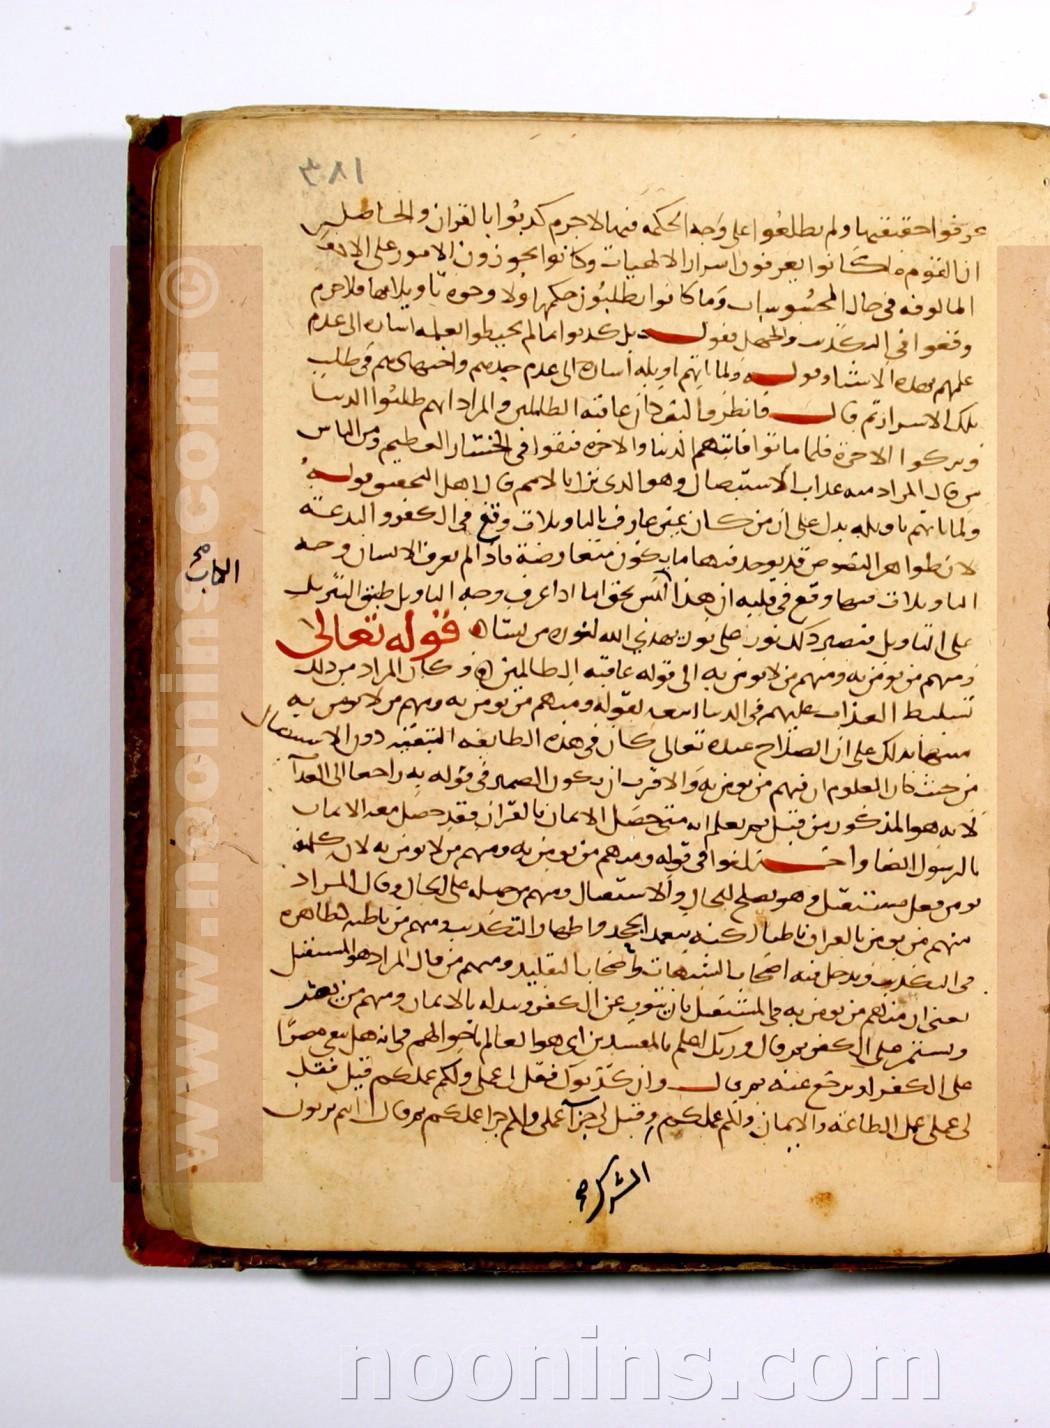 ٣٨١
عرفوا حقيقتها ولم يطلعوا على وجه الحكمة فيها لاجرم كذبوا بالقران والحاصل
ان القوم ما كانوا يعرفون اسرار الالهيات وكانوا يجوزون الامور على الا
المالوفة في حال المحسوسات وما كانوا يطلبون حكمها ولا وجوه تاويلاتها فلاجرم
وقعوا في التكذيب والجهل فقوله بل كذبوا بما لم يحيطوا بعلمه اشارة الى عدم
علمهم بهذه الاشيا وقوله ولما ياتهم تاويله اشارة الى عدم جدهم واجتهادهم في طلب
تلك الاسرار ثم قال فانظر كيف كان عاقبة الظالمين والمراد انهم طلبوا الدنيا
وتركوا الاخرة فلما ماتوا فاتتهم الدنيا والاخرة فبقوا في الخسار العظيم ومن الناس
من قال المراد منه عذاب الاستيصال وهو الذي نزل بالامم قال اهل التحقيق وقوله
ولما ياتهم تاويله يدل على ان من كان غير عارف بالتاويلات وقع في الكفر والبدعة
لان ظواهر النصوص قد يوجد فيها ما يكون متعارضة فاذا لم يعرف الانسان وجه
التاويلات فيها وقع في قلبه ان هذا ليس بحق اما اذا عرف وجه التاويل طبق التنزيل
على التاويل فتصير ذلك نور على نور يهدي الله لنوره من يشا قوله تعالى
ومنهم من يومن به ومنهم من لا يومن به الى قوله عاقبة الظالمين وكان المراد من ذلك
تسليط العذاب عليهم في الدنيا اتبعه بقوله ومنهم من يومن به ومنهم من لا يومن به
منبها بذلك على ان الصلاح عنده تعالى كان في هذه الطايفة التبقية دون الاستيصال
من حيث كان المعلوم ان فيهم من يومن به والاقرب ان يكون الضمير في قوله به راجعا الى القران
لانه هو المذكور من قبل ثم يعلم انه متى حصل الايمان بالقران فقد حصل معه الايمان
بالرسول ايضا واختلفوا في قوله ومنهم من يومن به ومنهم من لا يومن به لان كلمة
يومن فعل مستقبل وهو يصلح للحال والاستقبال ومنهم من حمله على الحال وقال المراد
منهم من يومن بالقران باطنا لكنه يتعمد الجحد واظهار التكذيب ومنهم من باطنه كظاهره
في التكذيب ويدخل فيه اصحاب الشبهات واصحاب التقليد ومنهم من قال المراد هو المستقبل
يعني ان منهم من يومن به في المستقبل بان يتوب عن الكفر ويبدله بالايمان ومنهم من يصر
ويستمر على الكفر ثم قال وربك اعلم بالمفسدين اي هو العالم باحوالهم في انه هل يبقى مصرا
على الكفر او يرجع عنه ثم قال وان كذبوك فقل لي عملي ولكم عملكم قيل فقل
لي عملي على الطاعة والايمان ولكم عملكم وقيل لي جزا عملي ولكم جزا عملكم ثم قال انتم بريون